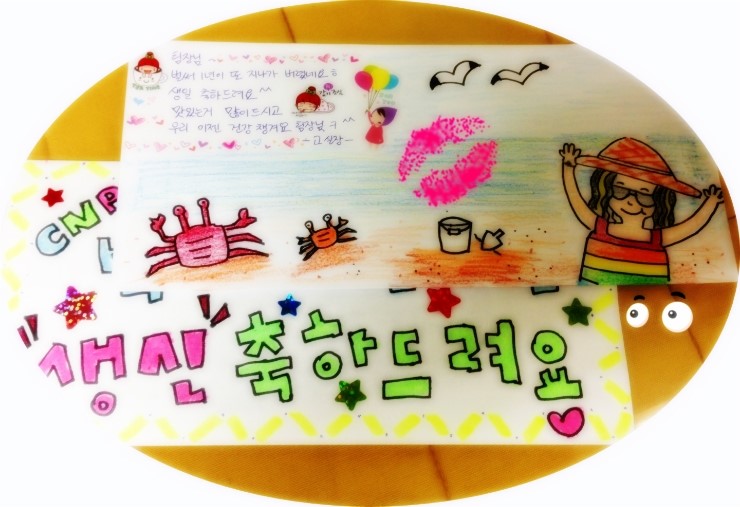 팀장님
벌써 1년이 또 지나가 버렸네요
생일 축하드려요^^
맛있는거 많이 드시고
우리 이젠 건강 챙겨요 팀장님
-고실장-
CNP
생신 축하드려요